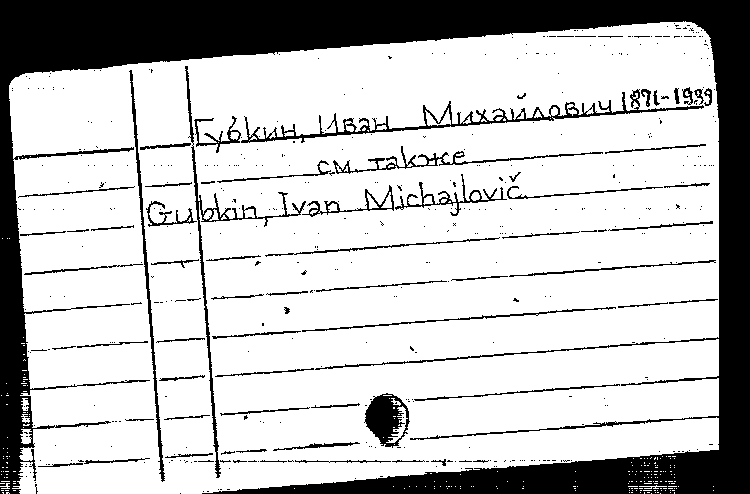 Губкин, Иван Михайлович 1871-1939
см. также
Gubkin, Ivan Michajlovič